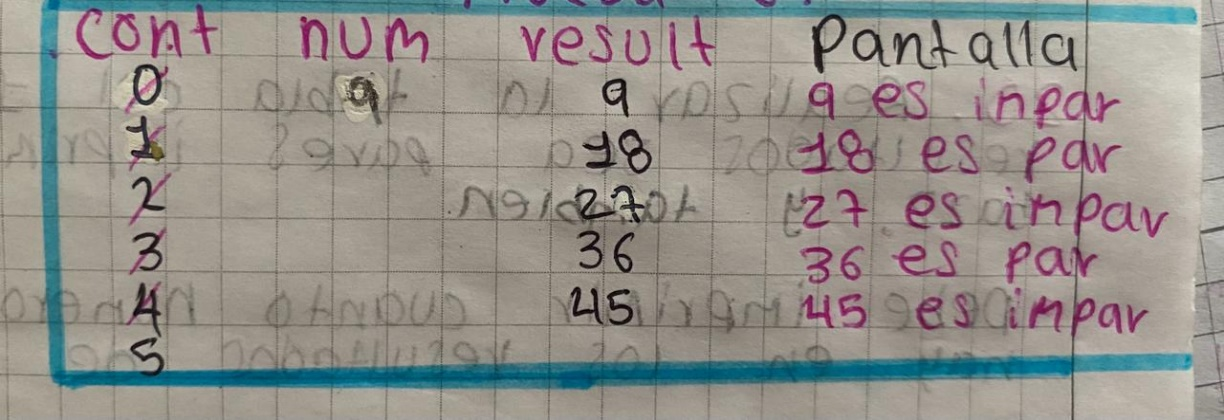 cont num result Pantalla
0 9 9 9 es inpar
1 18 18 es par
2 27 27 es inpar
3 36 36 es par
4 45 45 es impar
5